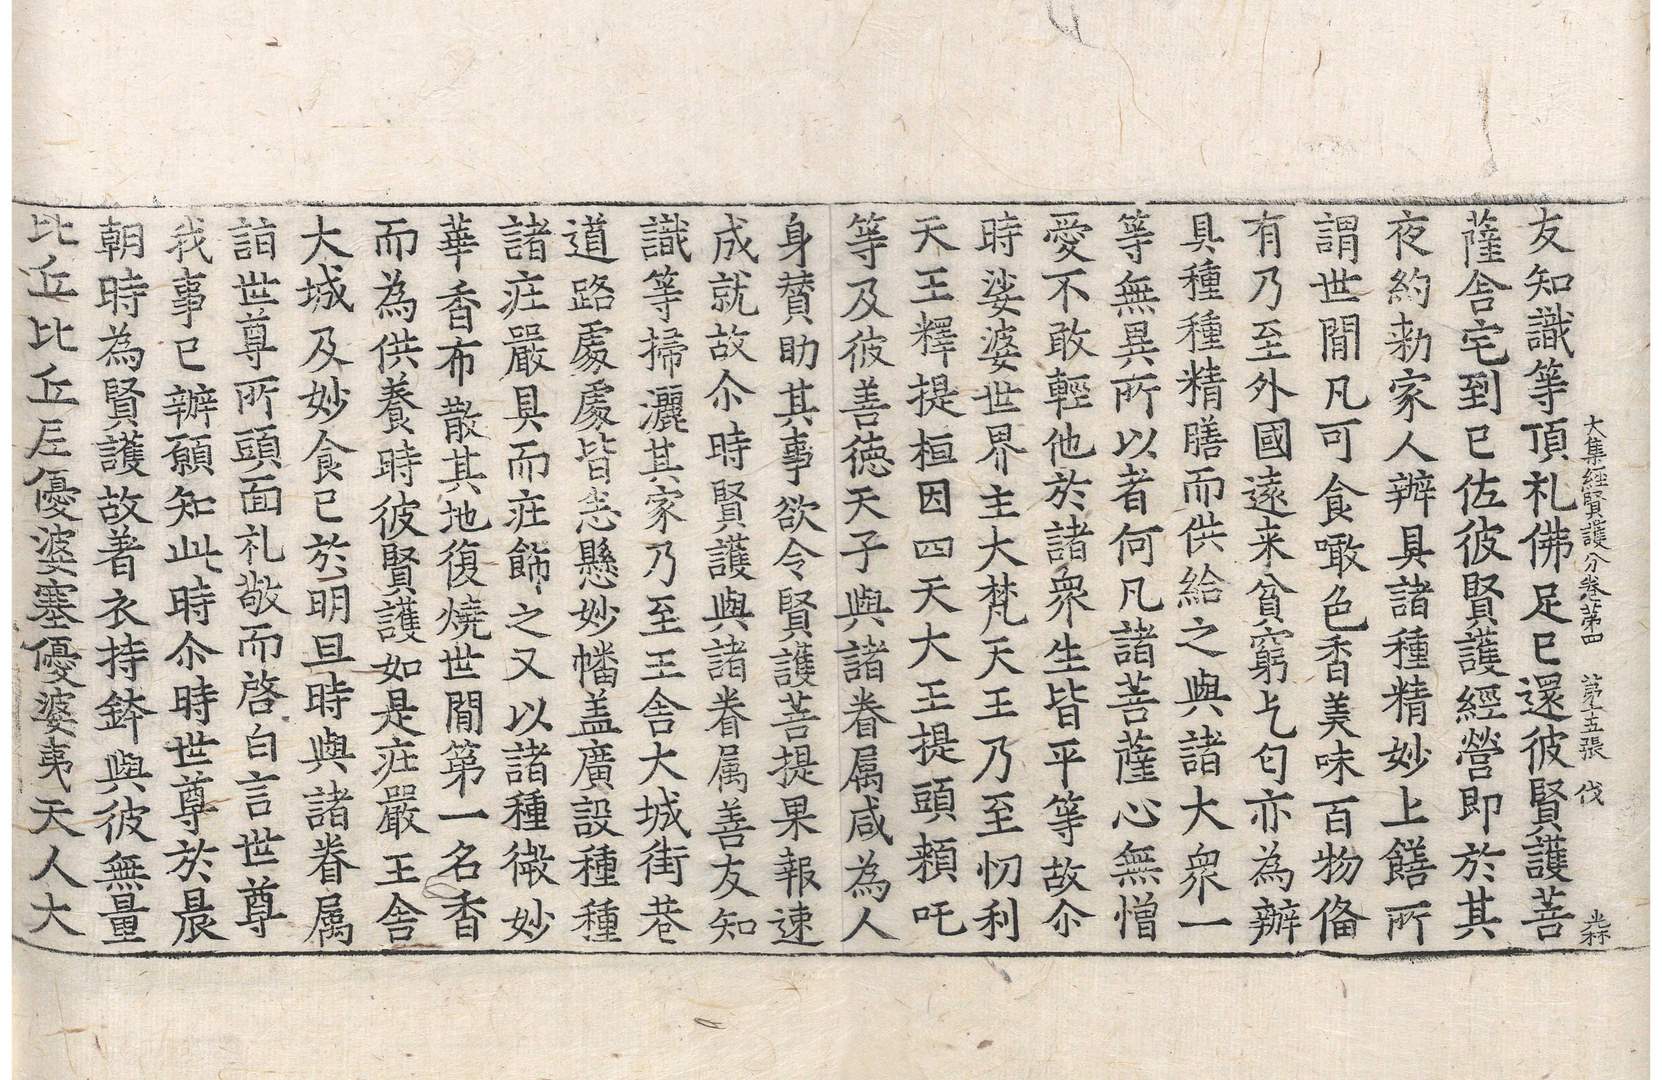 大集經賢護分卷第四 第五張 伐
友知識等頂礼佛足已還彼賢護菩
薩舎宅到已佐彼賢護經營即於其
夜約勑家人辦具諸種精妙上饍所
謂世間凡可食噉色香美味百物俻
有乃至外國遠来貧窮乞匂亦為辦
具種種精膳而供給之與諸大衆一
等無異所以者何凡諸菩薩心無憎
愛不敢輕他於諸衆生皆平等故尒
時娑婆世界主大梵天王乃至忉利
天王釋提桓因四天大王提頭頼吒
等及彼善徳天子與諸眷属咸為人
身賛助其事欲令賢護菩提果報速
成就故尒時賢護與諸眷属善友知
識等掃灑其家乃至王舎大城街巷
道路處處皆悉懸妙幡盖廣設種種
諸庄嚴具而庄飾之又以諸種微妙
華香布散其地復燒世間第一名香
而為供養時彼賢護如是庄嚴王舎
大城及妙食已於明旦時與諸眷属
詣世尊所頭面礼敬而啓白言世尊
我事已辦願知此時尒時世尊於晨
朝時為賢護故著衣持鉢與彼無量
比丘比丘尼優婆塞優婆夷天人大